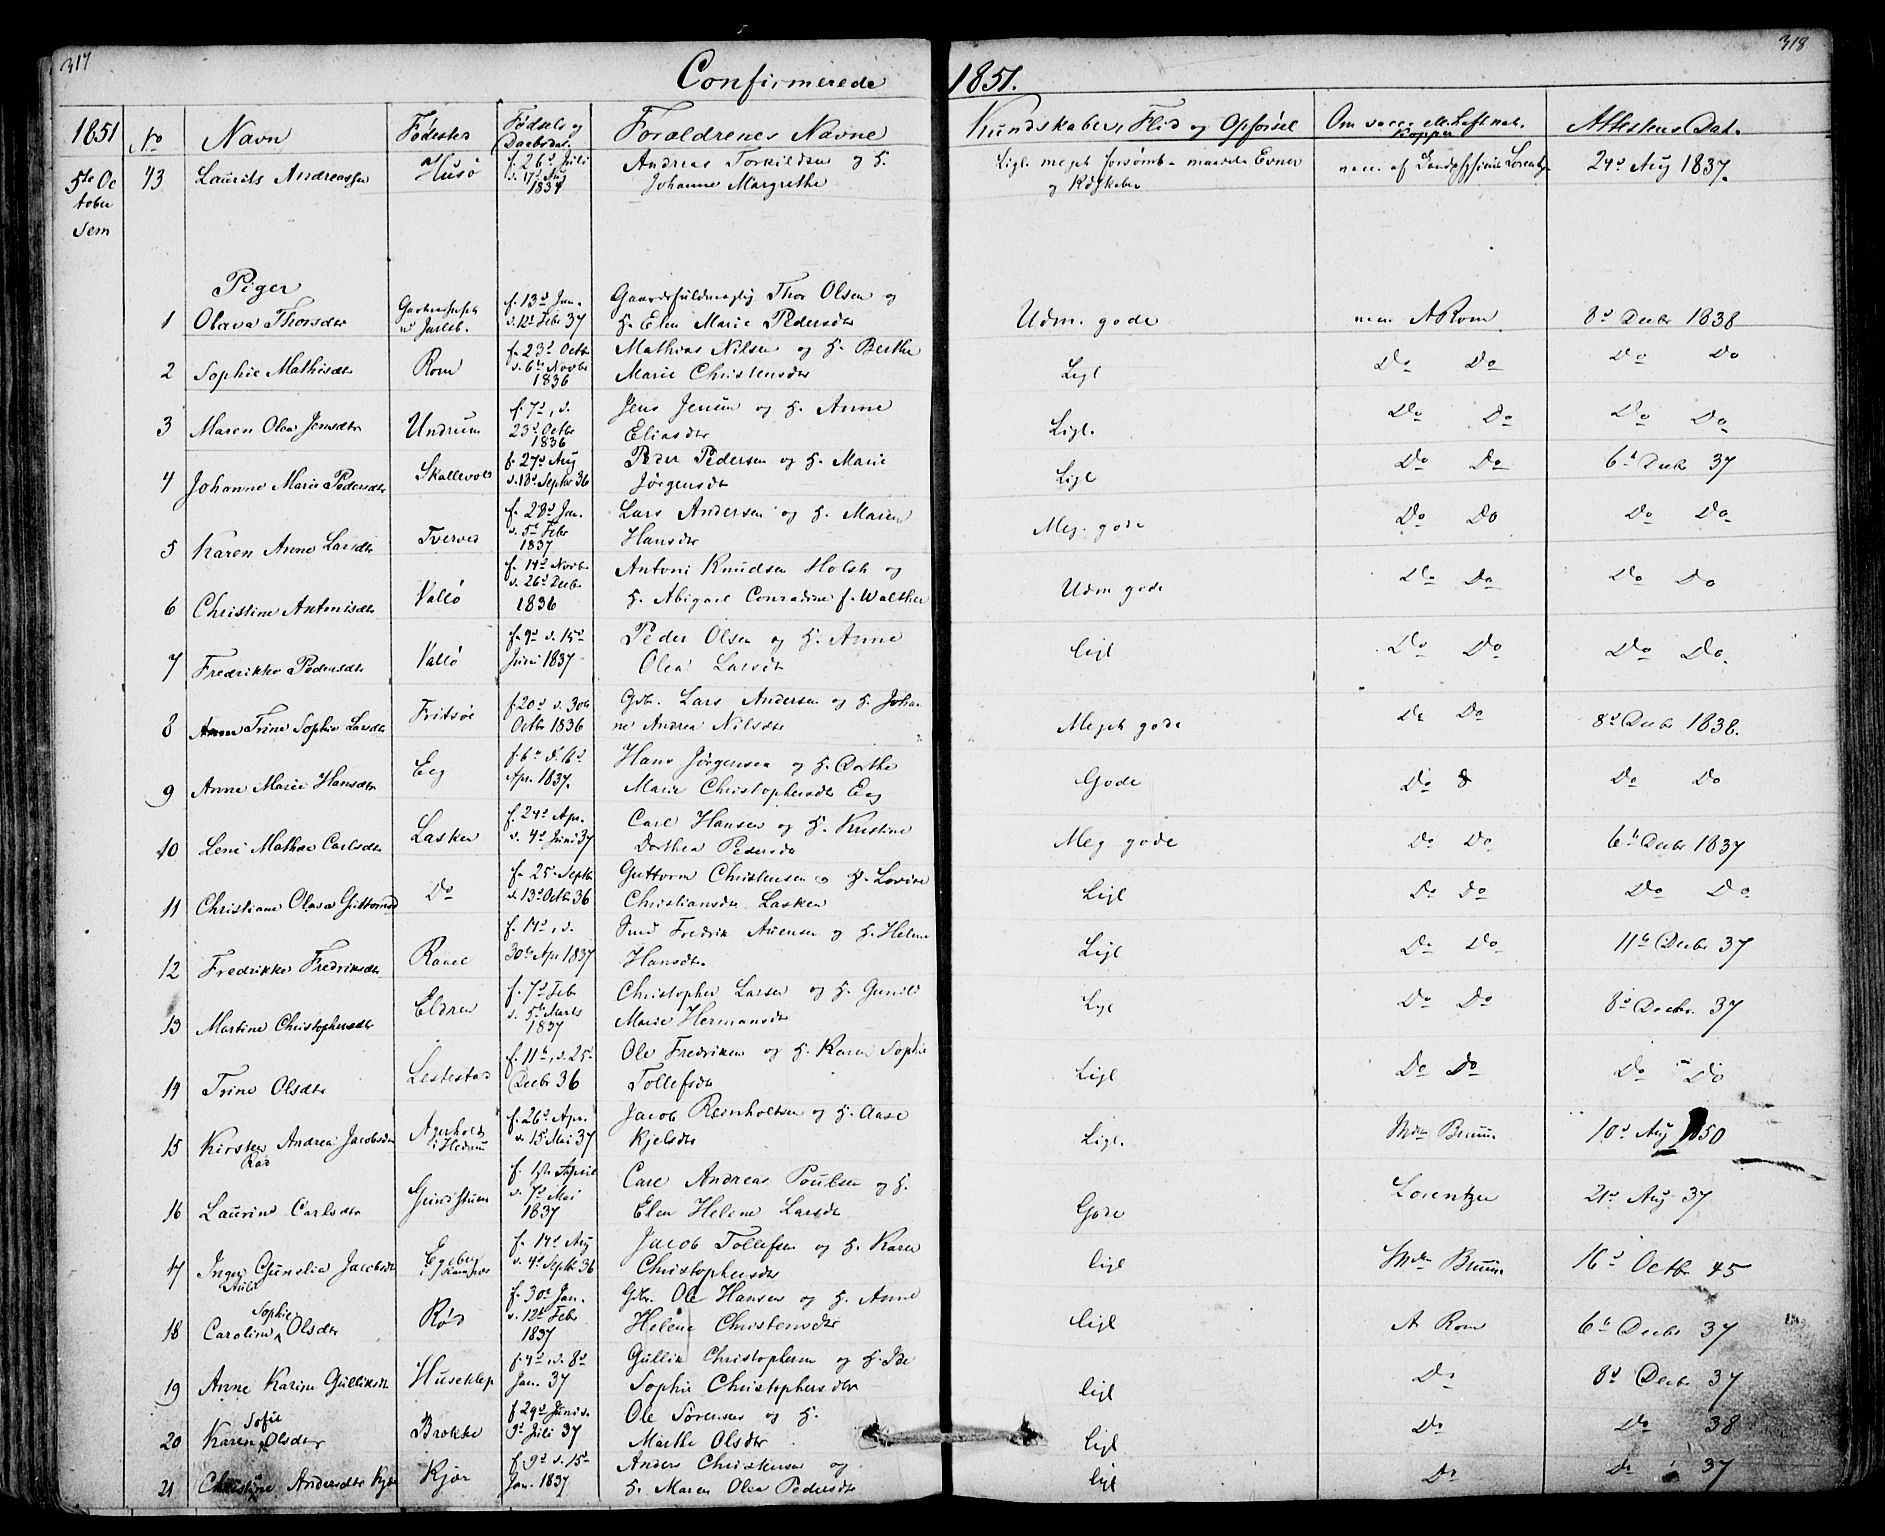 317
318
Confirmerede 1851.
1851 No Navn Fødested Fødsels og Daabsdat. Forældrenes Navne Kundskaber, Flid og Opførsel Om vacc. eller haft nat. Kopper Attestens Dat.
5te October Sem 43 Laurits Andreassen Husø f. 26d Juli d. 17d Aug 1837 Andreas Torkildsen og H. Johanne Margrethe Ligl. meget forsømt maadel. Evner og Kdskaber vacc. af Lorentzen 24d Aug 1837.
Piger
1 Olava Thorsdtr Jarlsb. f. 13d Jan. d. 12t Febr 37 Gaardsfuldmægtig Thor Olsen og H. Elen Marie Pedersdtr Udm. gode vacc. A Rom 8d Decbr 1838
2 Sophie Mathisdtr Rom f. 23d Octbr d. 6te Novbr 1836 Mathias Nilsen og H. Berthe Marie Christensdtr Ligl Do Do Do Do
3 Maren Olea Jensdtr Undrum f. 7d, d. 23d Octbr 1836 Jens Jensen og H. Anne Eliasdtr Ligl. Do Do Do Do
4 Johanne Marie Pedersdtr Skallevold f. 27d Aug d. 18d Septbr 36 Peder Pedersen og H. Marie Jørgensdtr Ligl Do Do 6t Decbr 37
5 Karen Anne Larsdtr Tverved f. 28d Jan. d. 5t Febr 1837 Lars Andersen og H. Maren Hansdtr Meg. gode Do Do Do Do
6 Christine Antonisdtr Vallø f. 14d Novbr d. 26d Decbr 1836 Antoni Knudsen Holst og H. Abigael Conradine f. Walther Udm gode Do Do Do Do
7 Fredrikke Pedersdtr Vallø f. 9d d. 15d Juni 1837 Peder Olsen og H. Anne Olea Larsdtr ligl Do Do Do Do.
8 Anne Trine Sophie Larsdtr Fritsøe f. 20d d. 30te Octbr 1836 Gbr. Lars Andersen og H. Johanne Andrea Nilsdtr Meget gode Do Do 8d Decbr 1838.
9 Anne Marie Hansdtr Eeg f. 6t d. 16d Apr. 1837. Hans Jørgensen og H. Dorthe Marie Christophersdtr Eeg Gode Do Do Do
10 Lene Mathea Carlsdtr Lasken f. 24d Apr. d. 4d Juni 37 Carl Hansen og H. Kristine Dorthea Pedersdtr Meg gode Do Do 6t Decbr 1837
11 Christiane Olava Guttormsd Do f. 25. Septbr d. 13d Octbr 36 Guttorm Christensen o H. Lovise Christiansdtr Lasken Ligl Do Do Do Do
12 Fredrikke Fredriksdtr f. 14d, d. 30te Apr 1837 Fredrik H. Helene Hansdtr Ligl Do Do 11t Decbr 37
13 Martine Christophersdtr Eldren f. 7d Feb d. 5te Marts 1837 Christopher Larsen og H. Gunild Marie Hermansdtr Ligl Do Do 8d Decbr. 37
14 Trine Olsdtr Lestestad f. 11t, d. 25. Decbr 36 Ole Fredriksen og H. Karen Sophie Tollefsdtr Ligl Do Do Do Do
15 Kirsten Andrea Jacobsdtr Rød Agerholdt i Hedrum f. 26d Apr. d. 15d Mai 37 Jacob Reinholtsen og H. Aase Kjelsdtr Ligl. Bruun 10d Aug 1850
16 Laurine Carlsdtr f. April d. 7d Mai 1837 Carl Andreas Poulsen og H. Elen Helene Larsdtr Gode Lorentzen 21d Aug 37
17 Inger Gunelia Jacobsdtr f. 14d Aug d. 4d Septbr 36 Jacob Tollefsen og H. Karen Christophersdtr ligl Bruun 16d Octbr 45
18 Caroline Sophie Olsdtr Rød f. 30d Jan. d. 12te Febr 1837 Gbr. Ole Hansen og H. Anne Helene Christensdtr ligl A Rom 6t Decbr 37
19 Anne Karine Gulliksdtr Huseklep f. 4d, d. 8d Jan. 37 Gullik Christophersen og H. Ide Sophie Christophersdtr ligl Do 8d Decbr 37
20 Karen Sofie Olsdtr Brekke f. 29d Juni d. 9d Juli 37 Ole Sørensen og H. Marthe Olsdtr ligl Do Do 38
21 Christine Andersdtr Kjær f. 9d d. 15d Jan. 1837 Anders Christensen og H. Maren Olea Pedersdtr ligl Do Do 37